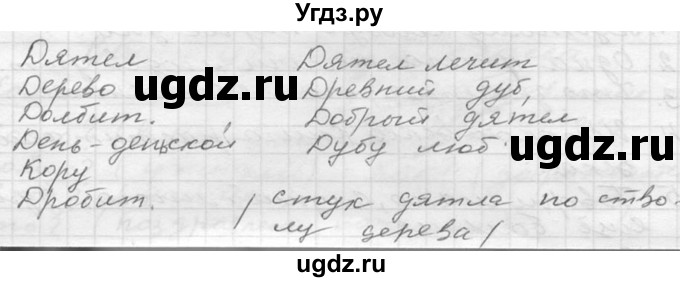 Угдз.ру
Дятел
Дерево
Долбит.
День-деньской
Кору
Дробит.
Дятел лечит
Древний дуб,
Добрый дятел
Дубу люб
/ стук дятла по ство-
лу дерева /
ugdz.ru
ugdz.ru
ugdz.ru
ugdz.ru